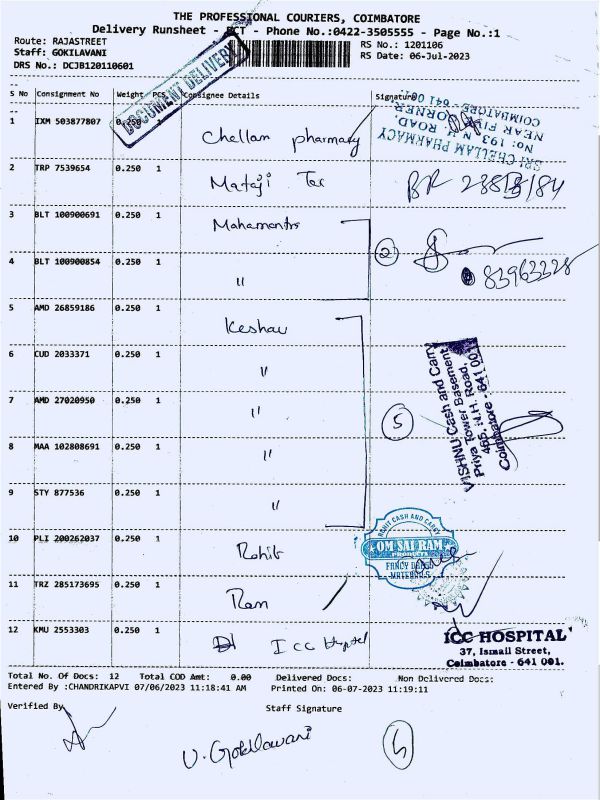 THE PROFESSIONAL COURIERS, COIMBATORE
Delivery Runsheet - PCT - Phone No.:0422-3505555 - Page No.:1
Route: RAJASTREET
RS No.: 1201106
Staff: GOKILAVANI
RS Date: 06-Jul-2023
DRS No.: DCJB120110601
DOCUMENT DELIVERY
S No Consignment No Weight PCS Consignee Details Signature
1 IXM 503877807 0.250 1 Chellam pharmacy
SRI CHELLAM PHARMACY
No: 193 N.H. ROAD,
NEAR FIVE CORNER
COIMBATORE - 641 001.
2 TRP 7539654 0.250 1 Mataji Tex
3 BLT 100900691 0.250 1 Mahamantra
4 BLT 100900854 0.250 1 "
2
83963228
5 AMD 26859186 0.250 1 Keshav
6 CUD 2033371 0.250 1 "
7 AMD 27020950 0.250 1 "
8 MAA 102808691 0.250 1 "
9 STY 877536 0.250 1 "
5
VISHNU Cash and Carry
Priya Tower Basement
465, N.H. Road,
Coimbatore - 641 001
10 PLI 200262037 0.250 1 Rohit
ROHIT CASH AND CARRY
OM SAI RAM
FANCY DRESS
MATERIALS
11 TRZ 285173695 0.250 1 Ram
12 KMU 2553303 0.250 1 ICC Hospital
ICC HOSPITAL
37, Ismail Street,
Coimbatore - 641 001.
Total No. Of Docs: 12 Total COD Amt: 0.00 Delivered Docs: Non Delivered Docs:
Entered By :CHANDRIKAPVI 07/06/2023 11:18:41 AM Printed On: 06-07-2023 11:19:11
Verified By
Staff Signature
V. Gokilavani